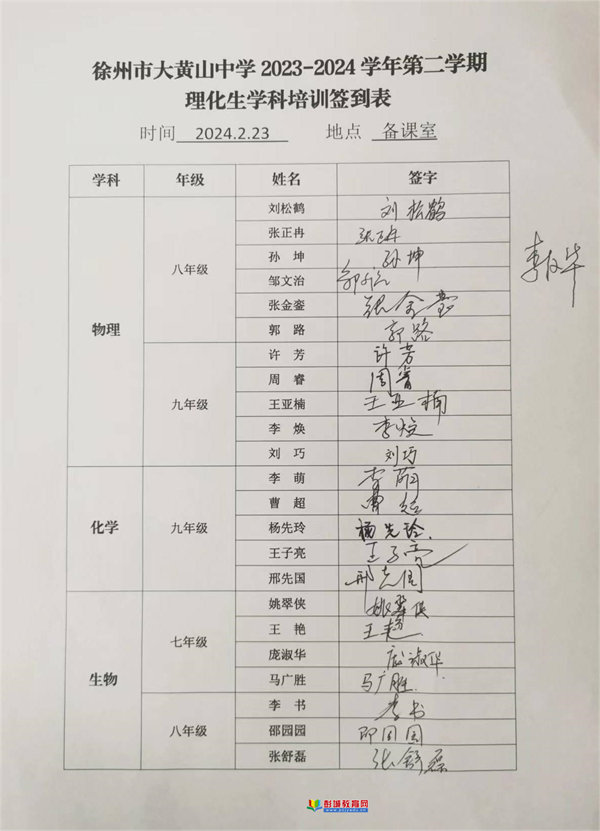 徐州市大黄山中学2023-2024学年第二学期
理化生学科培训签到表
时间 2024.2.23 地点 备课室
学科 年级 姓名 签字
物理 八年级 刘松鹤 刘松鹤
张正冉 张正冉
孙 坤 孙坤
邹文治
张金銮 张金銮
郭 路 郭路
九年级 许 芳 许芳
周 睿 周睿
王亚楠 王亚楠
李 焕 李焕
刘 巧 刘巧
化学 九年级 李 萌 李萌
曹 超 曹超
杨先玲 杨先玲
王子亮 王子亮
邢先国 邢先国
生物 七年级 姚翠侠 姚翠侠
王 艳 王艳
庞淑华 庞淑华
马广胜 马广胜
八年级 李 书 李书
邵园园 邵园园
张舒磊 张舒磊
彭城教育网